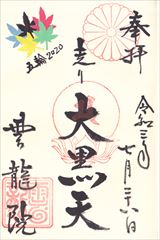 奉拝
令和三年
七月二十六日
走り
大黒天
五輪2020
雲龍院